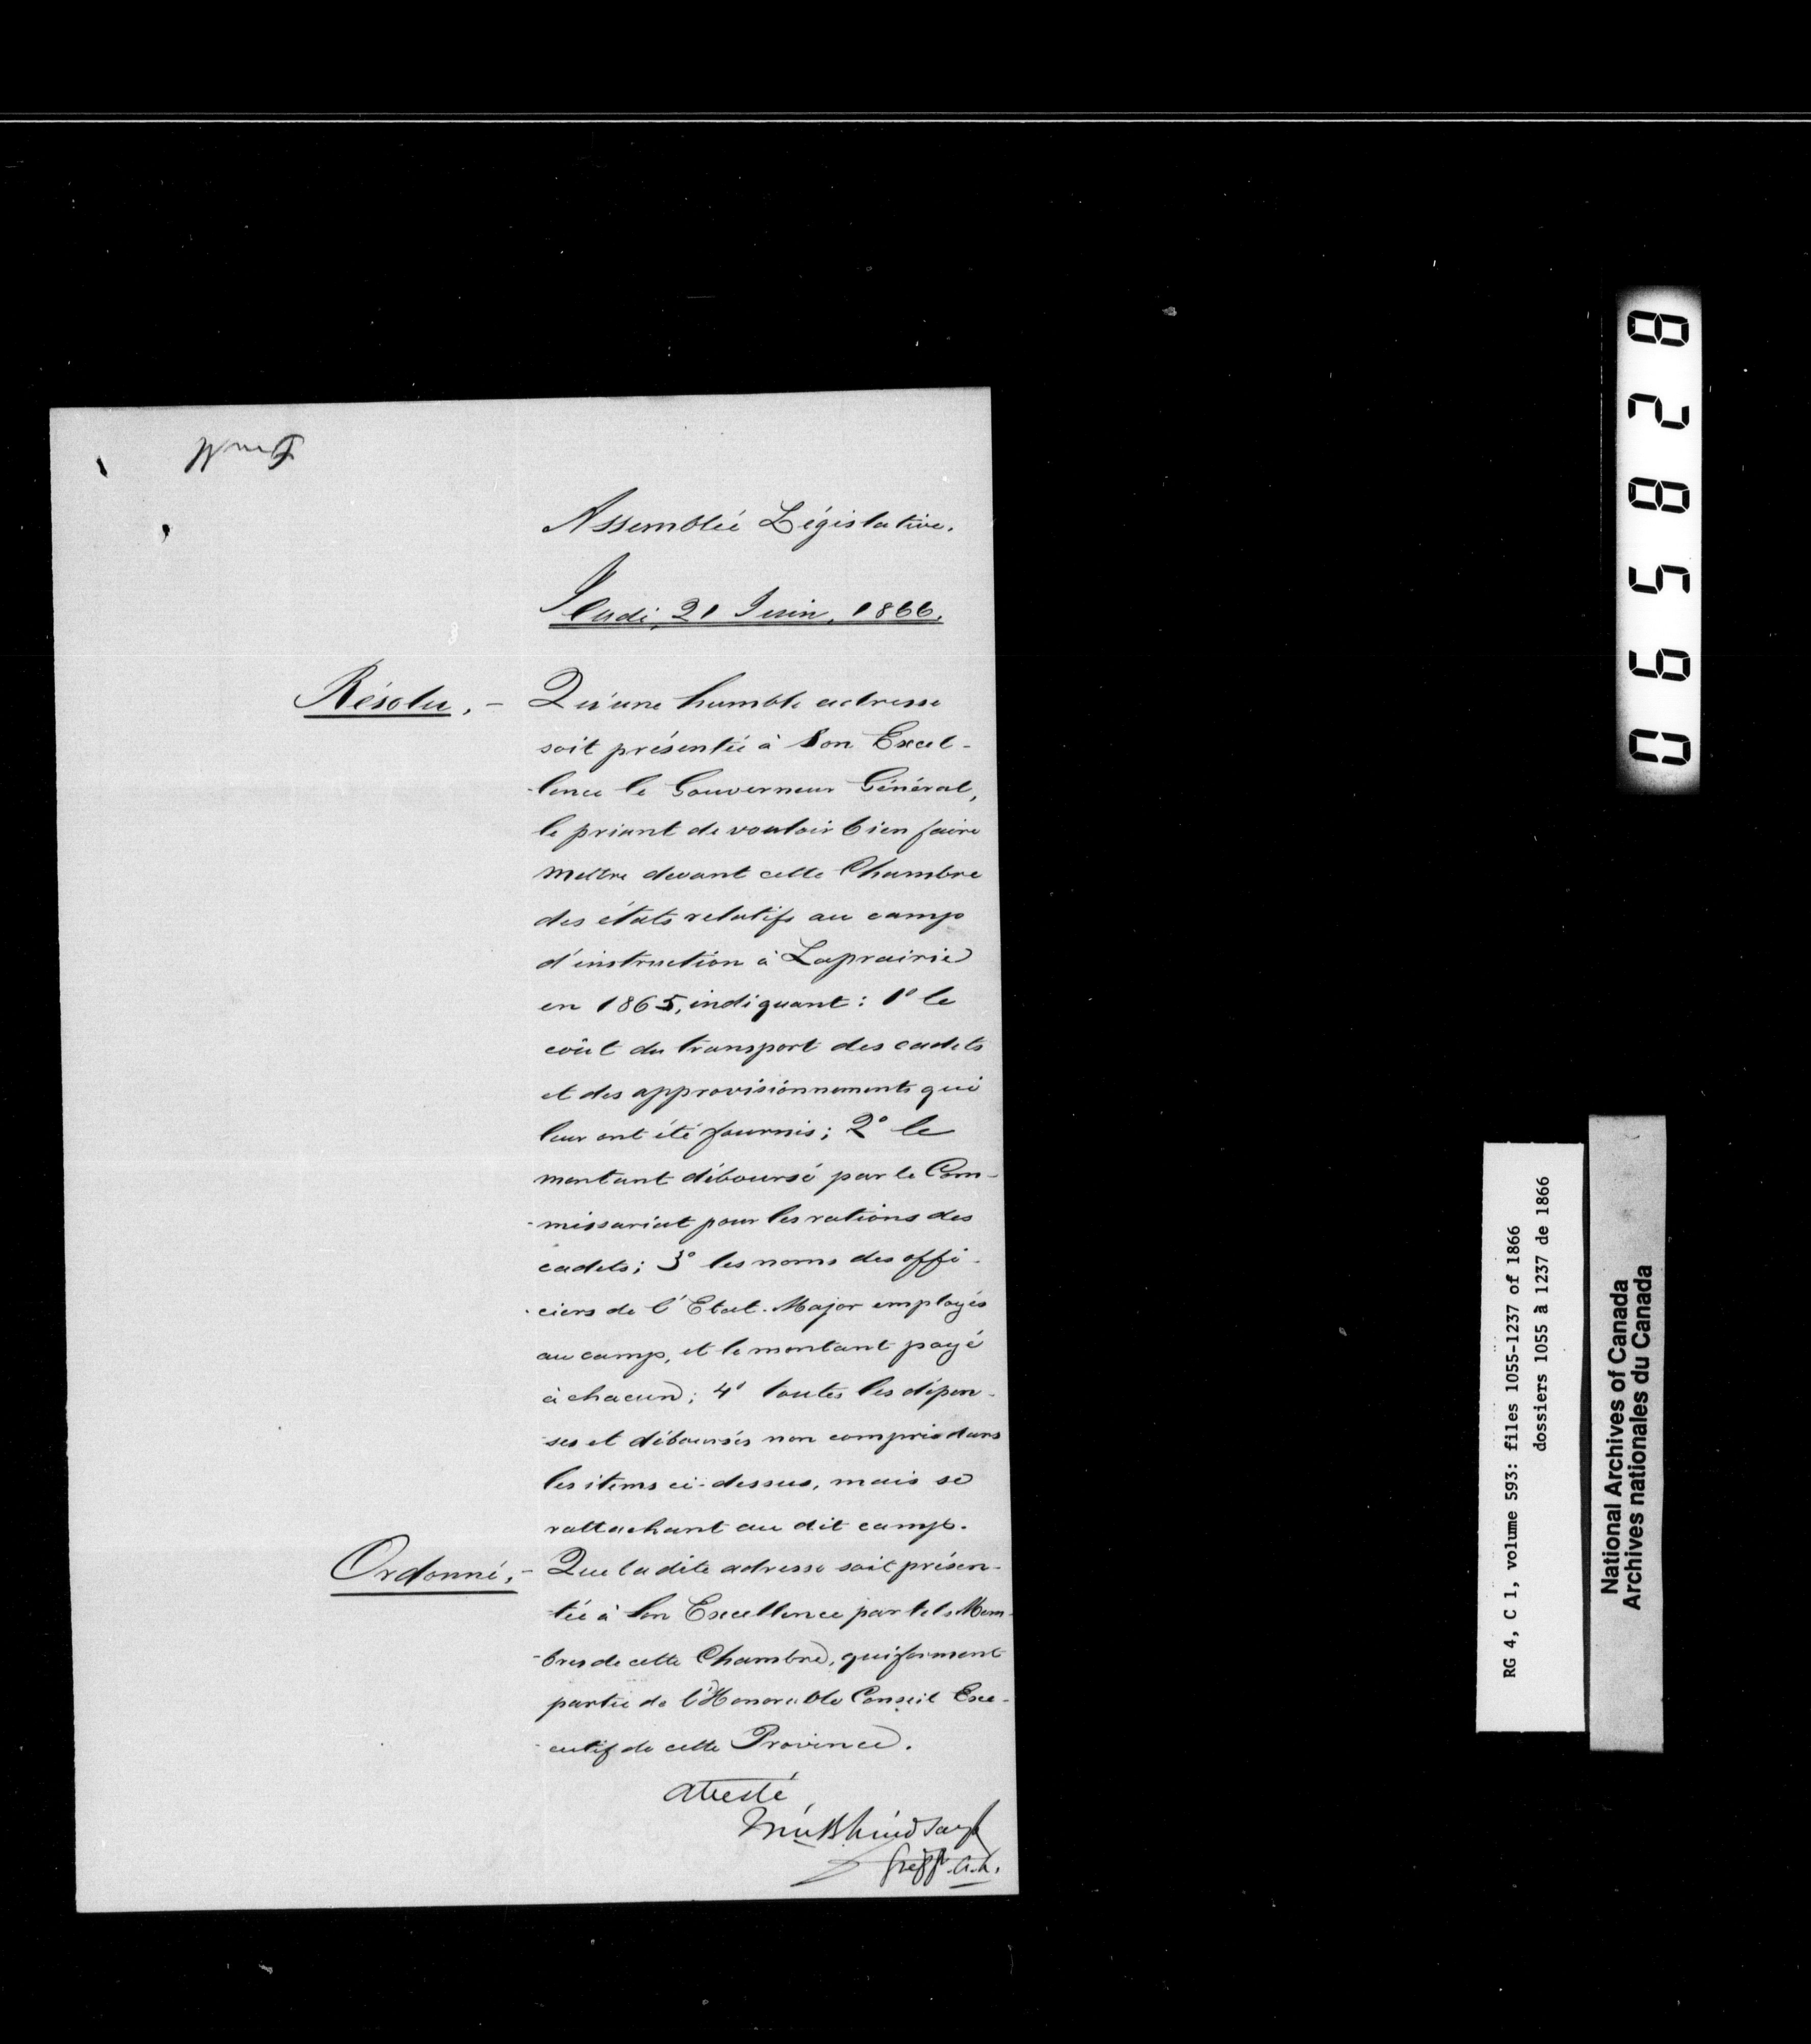 Assemblée Législative.
Jeudi, 21 Juin, 1866.
Résolu, - Qu'une humble adresse
soit présentée à Son Excel-
-lence le Gouverneur Général,
le priant de vouloir bien faire
mettre devant cette Chambre
des états relatifs au camp
d'instruction à Laprairie
en 1865, indiquant: 1° le
coût du transport des cadets
et des approvisionnements qui
leur ont été fournis; 2° le
montant déboursé par le Com-
-missariat pour les rations des
cadets; 3° les noms des offi-
-ciers de l'Etat-Major employés
au camp, et le montant payé
à chacun; 4° toutes les dépen-
-ses et déboursés non compris dans
les items ci-dessus, mais se
rattachant au dit camp.
Ordonné, - Que la dite adresse soit présen-
-tée à Son Excellence par tels Mem-
-bres de cette Chambre, qui forment
partie de l'Honorable Conseil Exé-
-cutif de cette Province.
Attesté,
Lindsay
Greff. A.L.
065828
RG 4, C 1, volume 593: files 1055-1237 of 1866
dossiers 1055 à 1237 de 1866
National Archives of Canada
Archives nationales du Canada